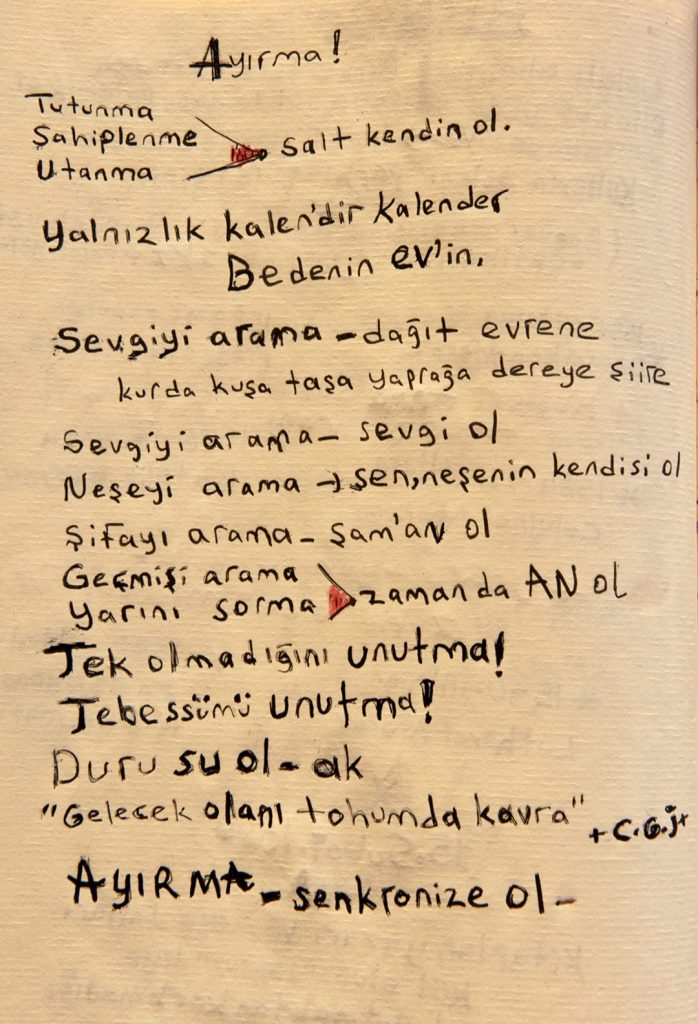 Ayırma!
Tutunma
Sahiplenme
Utanma
salt kendin ol.
Yalnızlık kalen'dir Kalender
Bedenin ev'in.
Sevgiyi arama - dağıt evrene
kurda kuşa taşa yaprağa dereye şiire
Sevgiyi arama - sevgi ol
Neşeyi arama → sen, neşenin kendisi ol
Şifayı arama - şam'an ol
Geçmişi arama
yarını sorma
zamanda AN ol
Tek olmadığını unutma!
Tebessümü unutma!
Duru su ol - ak
"Gelecek olanı tohumda kavra"
+ C.G.J+
AYIRMA - senkronize ol -